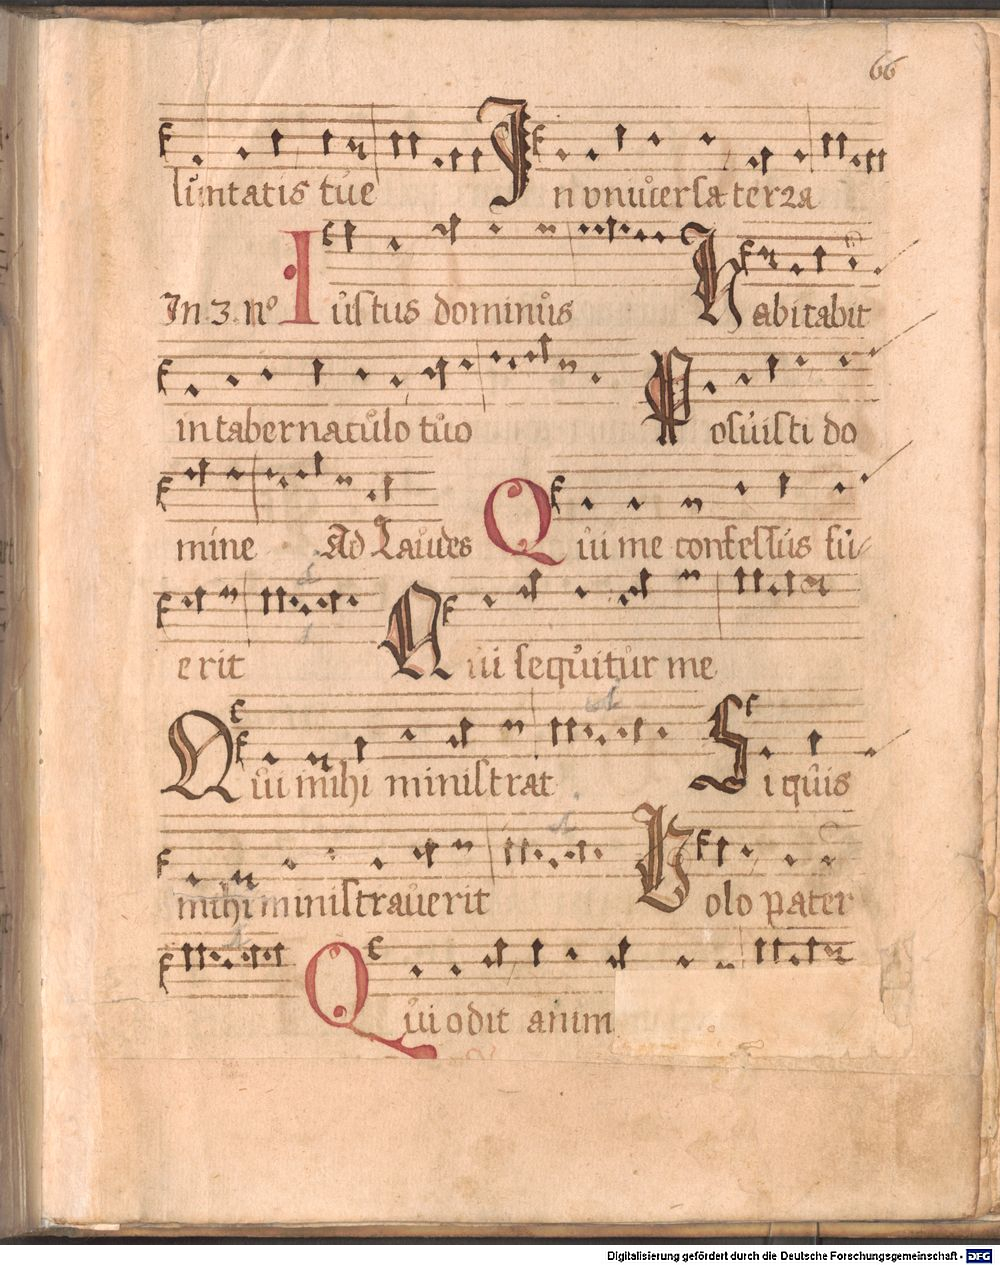 66
luntatis tue In vniuersa terra
In 3. nº Iustus dominus Habitabit
in tabernaculo tuo Posuisti do
mine Ad Laudes Qui me confessus fu
erit Qui sequitur me
Qui mihi ministrat Si quis
mihi ministrauerit Volo pater
Qui odit anim
Digitalisierung gefördert durch die Deutsche Forschungsgemeinschaft - DFG